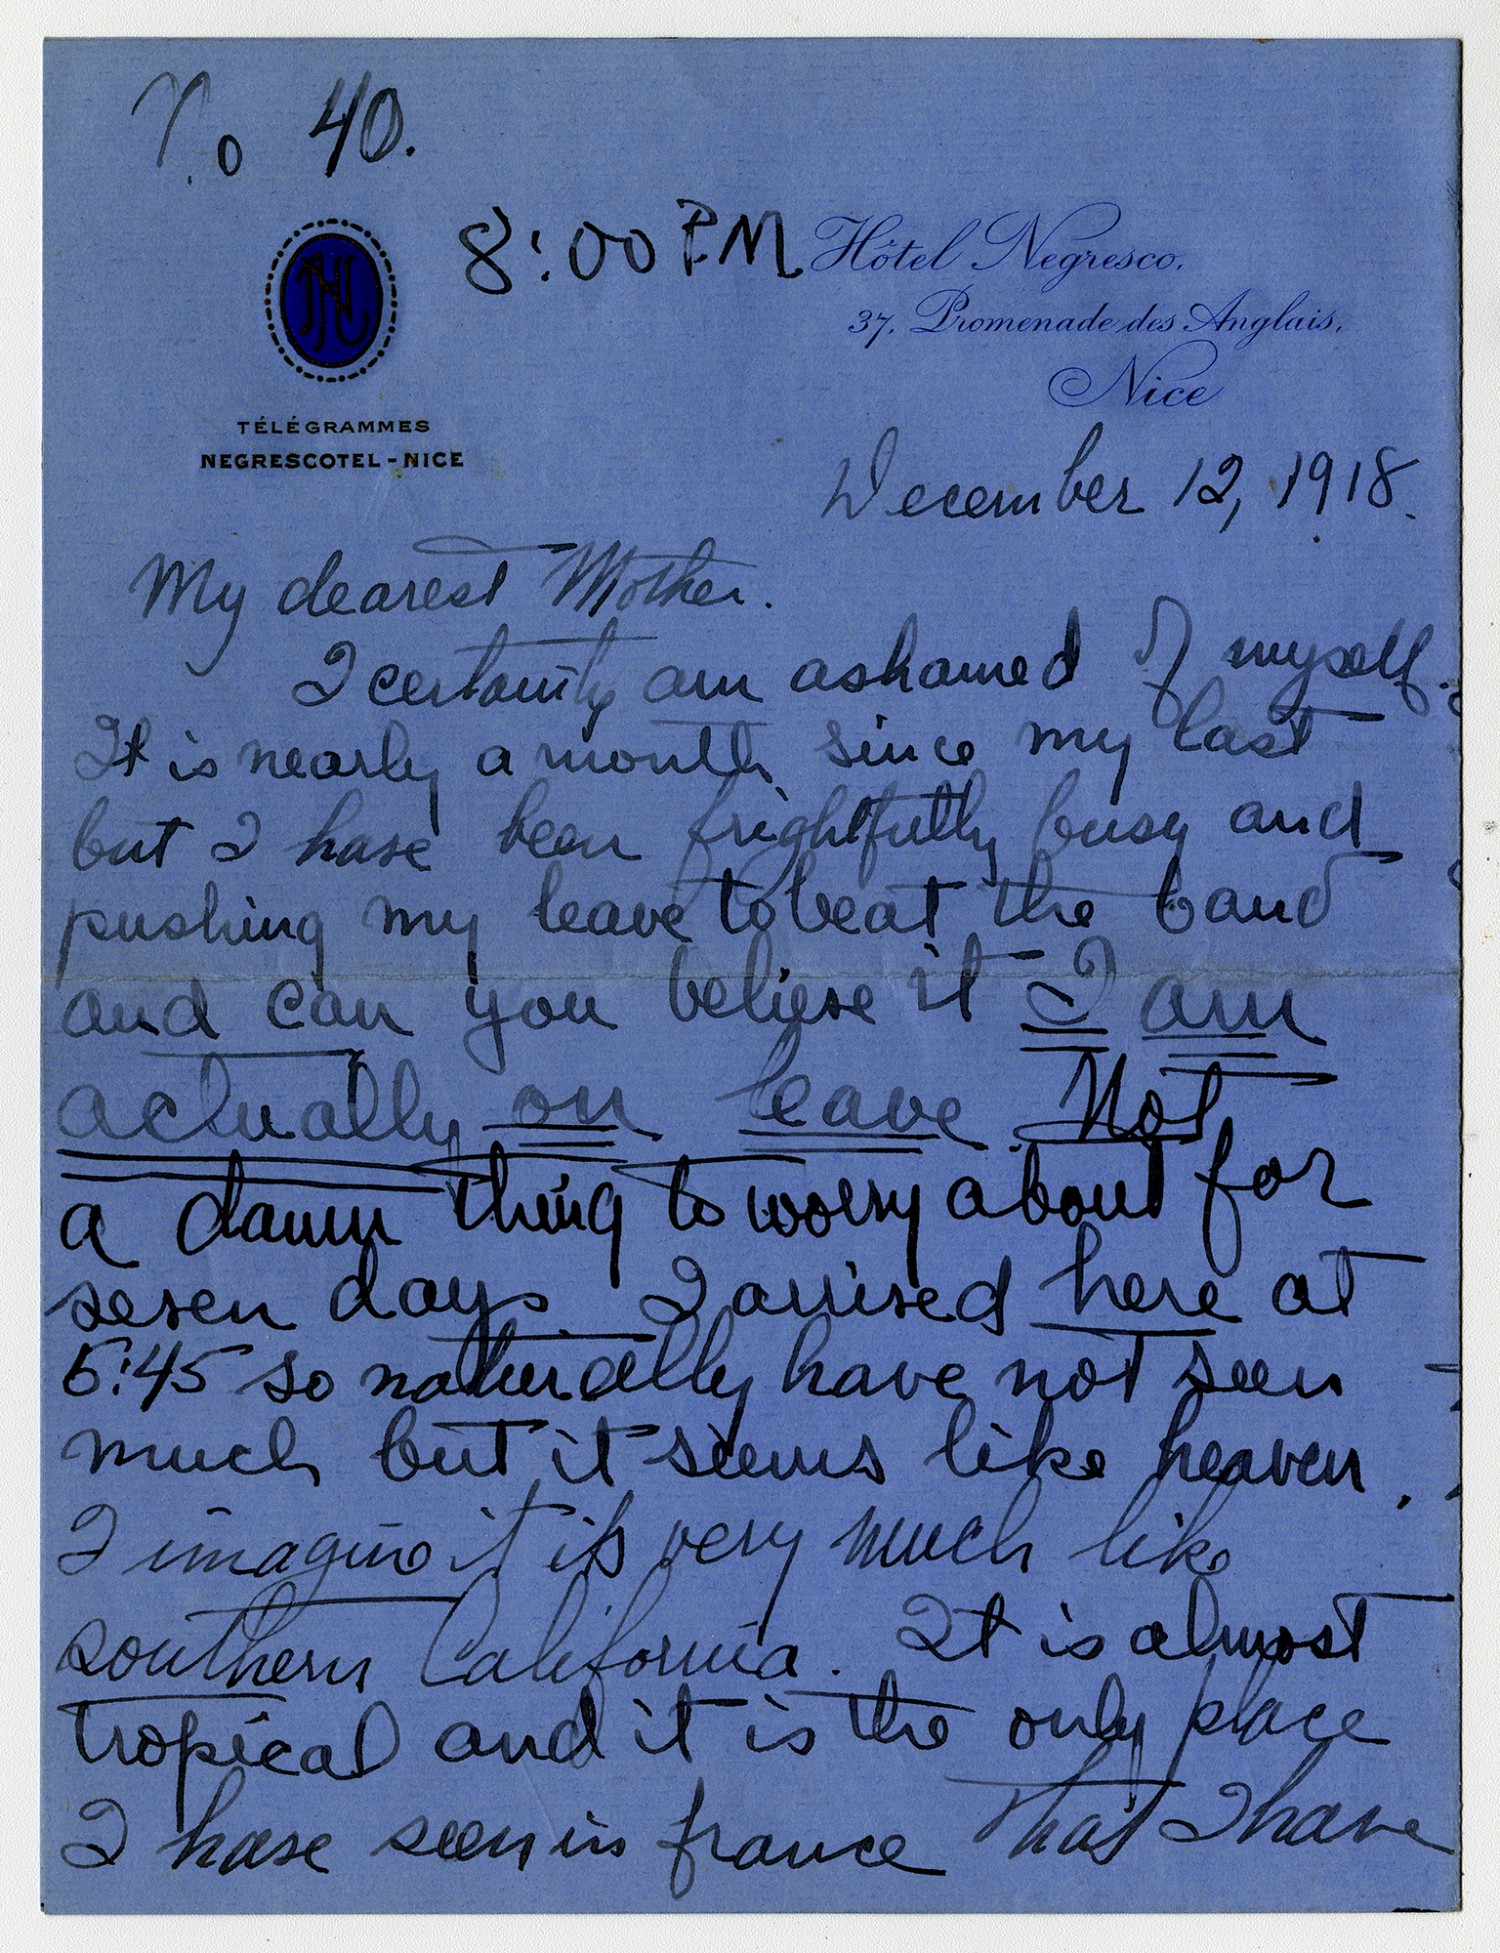 No 40.
8:00 PM
Hôtel Negresco,
37, Promenade des Anglais,
Nice
HN
TÉLÉGRAMMES
NEGRESCOTEL - NICE
December 12, 1918.
My dearest Mother.
I certainly am ashamed of myself.
It is nearly a month since my last
but I have been frightfully busy and
pushing my leave to beat the band
and can you believe it I am
actually on leave Not
a damn thing to worry about for
seven days. I arrived here at
5:45 so naturally have not seen
much but it seems like heaven.
I imagine it is very much like
southern California. It is almost
tropical and it is the only place
I have seen in france that I have